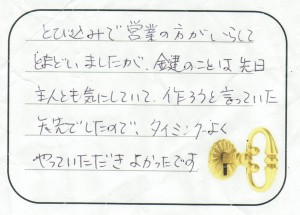 とび込みで営業の方がいらして
とまどいましたが、鍵のことは先日
主人とも気にしていて、作ろうと言っていた
矢先でしたので、タイミングよく
やっていただきよかったです